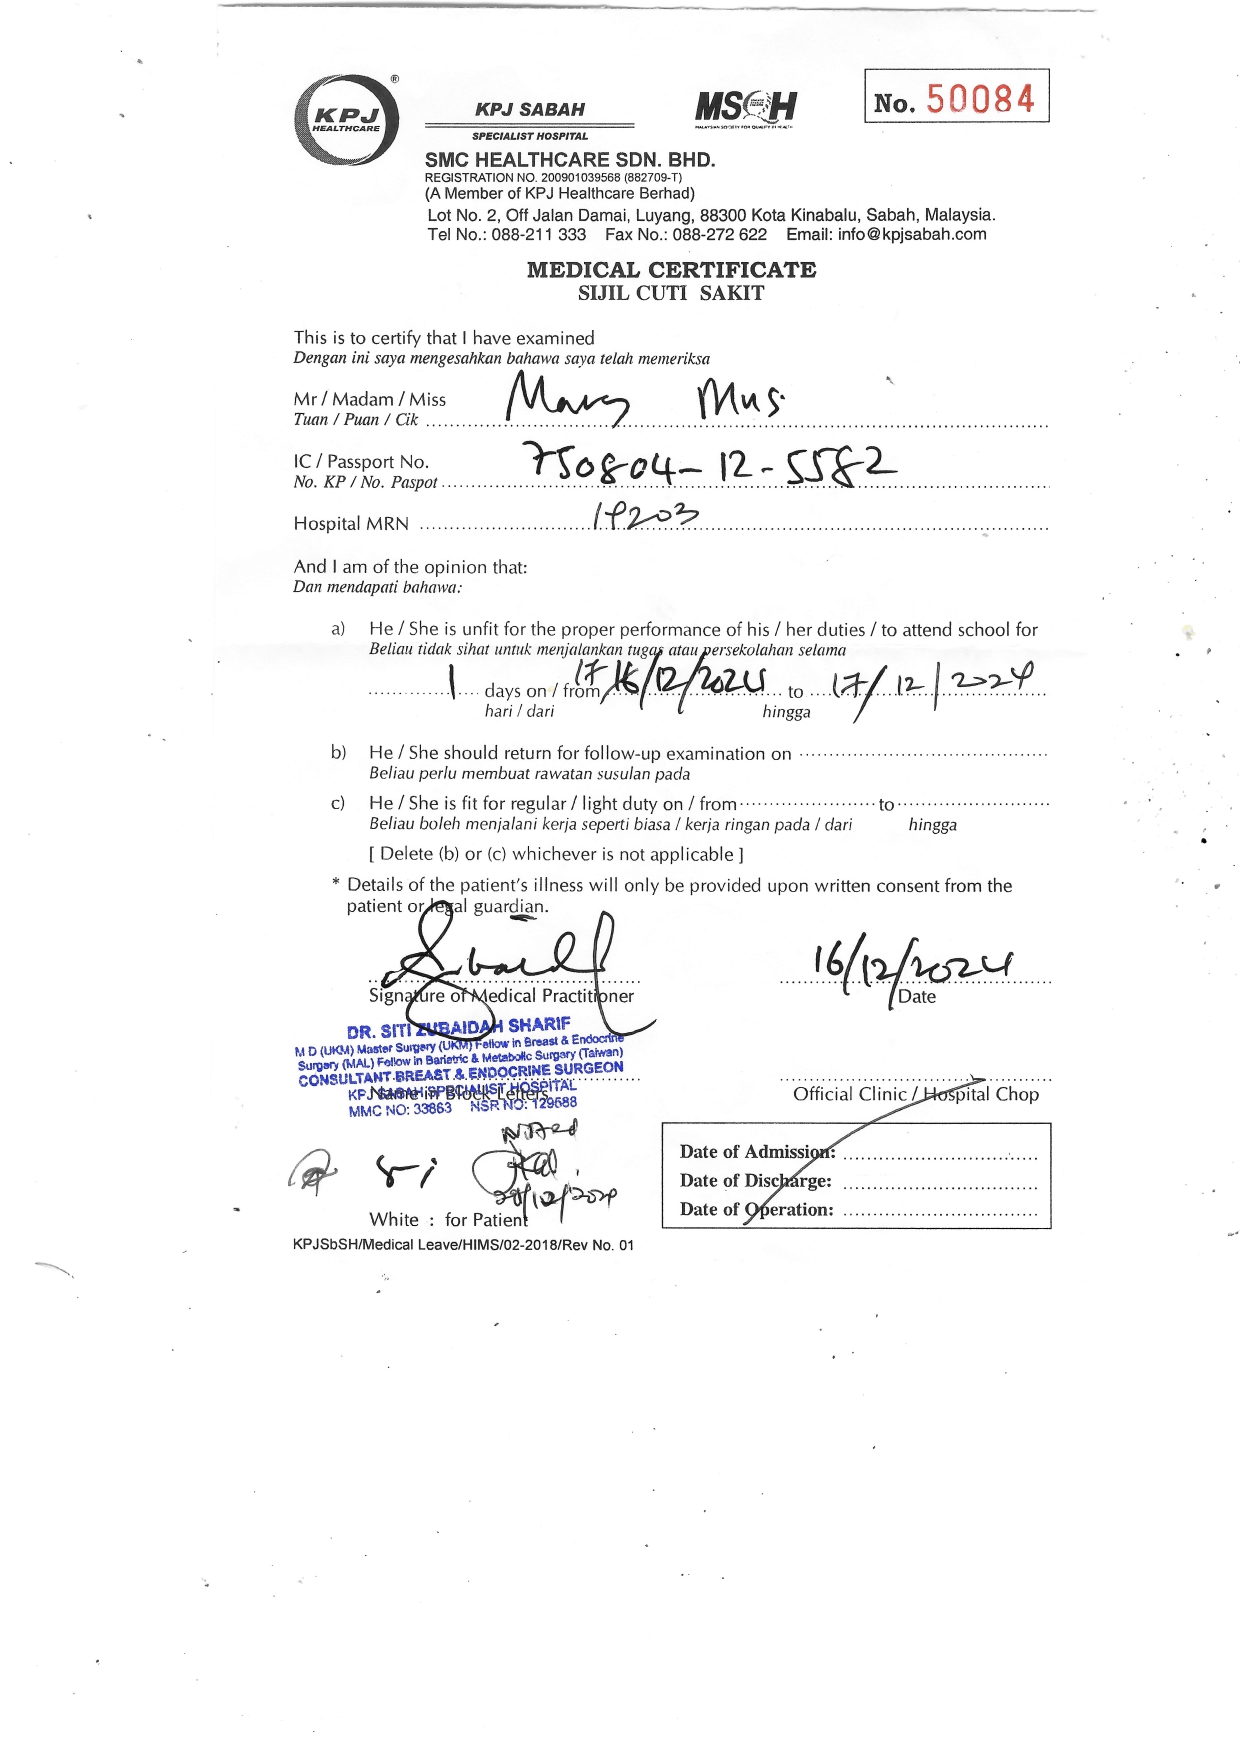 KPJ
HEALTHCARE
®
KPJ SABAH
SPECIALIST HOSPITAL
MSQH
MALAYSIAN SOCIETY FOR QUALITY IN HEALTH
No. 50084
SMC HEALTHCARE SDN. BHD.
REGISTRATION NO. 200901039568 (882709-T)
(A Member of KPJ Healthcare Berhad)
Lot No. 2, Off Jalan Damai, Luyang, 88300 Kota Kinabalu, Sabah, Malaysia.
Tel No.: 088-211 333 Fax No.: 088-272 622 Email: info@kpjsabah.com
MEDICAL CERTIFICATE
SIJIL CUTI SAKIT
This is to certify that I have examined
Dengan ini saya mengesahkan bahawa saya telah memeriksa
Mr / Madam / Miss Mary Mus
Tuan / Puan / Cik
IC / Passport No. 750804-12-5582
No. KP / No. Paspot
Hospital MRN 19203
And I am of the opinion that:
Dan mendapati bahawa:
a) He / She is unfit for the proper performance of his / her duties / to attend school for
Beliau tidak sihat untuk menjalankan tugas atau persekolahan selama
1 days on / from 17 16/12/2024 to 17/12/2024
hari / dari hingga
b) He / She should return for follow-up examination on
Beliau perlu membuat rawatan susulan pada
c) He / She is fit for regular / light duty on / from to
Beliau boleh menjalani kerja seperti biasa / kerja ringan pada / dari hingga
[ Delete (b) or (c) whichever is not applicable ]
* Details of the patient's illness will only be provided upon written consent from the
patient or legal guardian.
16/12/2024
Signature of Medical Practitioner Date
DR. SITI ZUBAIDAH SHARIF
M D (UKM) Master Surgery (UKM) Fellow in Breast & Endocrine
Surgery (MAL) Fellow in Bariatric & Metabolic Surgery (Taiwan)
CONSULTANT BREAST & ENDOCRINE SURGEON
KPJ SABAH SPECIALIST HOSPITAL
Name in Block Letters Official Clinic / Hospital Chop
MMC NO: 33863 NSR NO: 129588
Noted
20/12/2024
Date of Admission:
Date of Discharge:
Date of Operation:
White : for Patient
KPJSbSH/Medical Leave/HIMS/02-2018/Rev No. 01